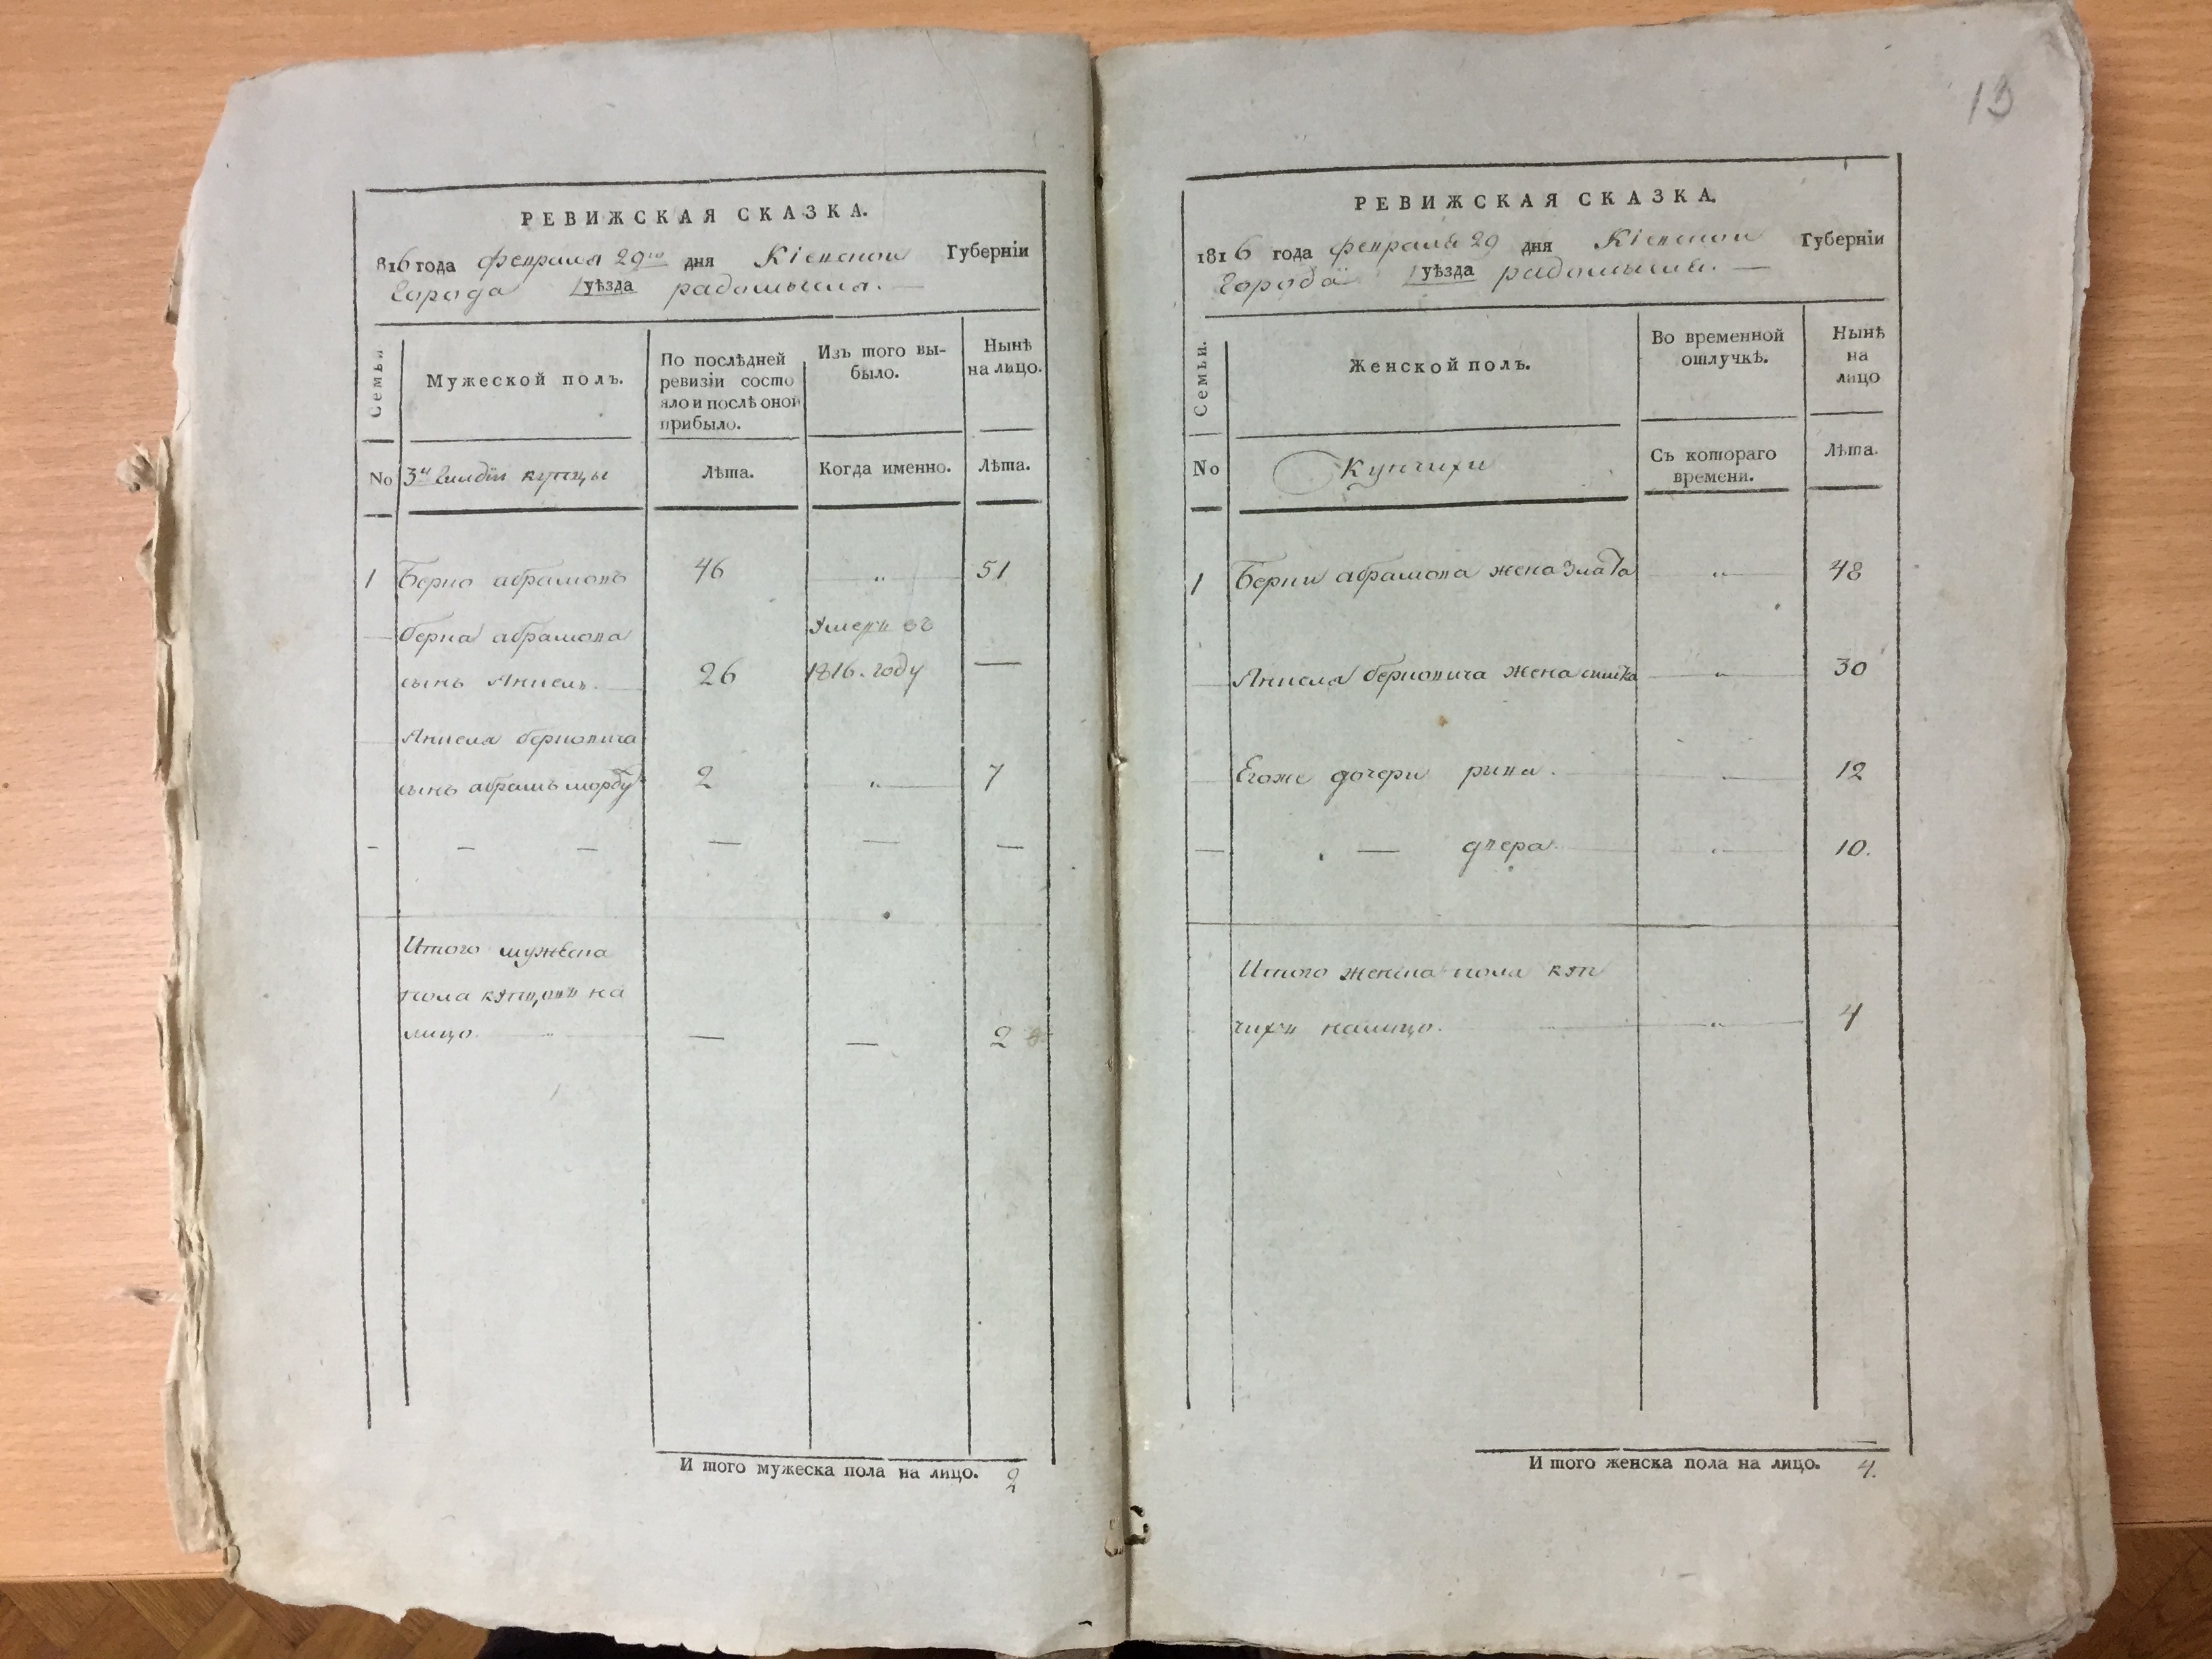 РЕВИЖСКАЯ СКАЗКА.
816 года февраля 29го дня Кіевской Губерніи
Города уѣзда радомысля.
Семьи
Мужеской полъ.
По послѣдней
ревизіи состо
яло и послѣ оной
прибыло.
Изъ того вы-
было.
Нынѣ
на лицо.
No
3й Гилдіи купцы
Лѣта.
Когда именно.
Лѣта.
1 Берко абрамовъ 46 „ 51
берка абрамова
сынъ Анцель. 26 Умеръ въ 1816. году —
Анцеля берковича
сынъ абрамъ мордку 2 „ 7
Итого мужеска
пола купцовъ на
лицо. — — 2
И того мужеска пола на лицо. 2
13
РЕВИЖСКАЯ СКАЗКА.
1816 года февраля 29 дня Кіевской Губерніи
Города уѣзда радомысля.
Семьи.
Женской полъ.
Во временной
отлучкѣ.
Нынѣ
на
лицо
No
Купчихи
Съ котораго
времени.
Лѣта.
1 Берки абрамова жена злата „ 48
Анцеля берковича жена „ 30
Егоже дочери рива. „ 12
— двера. „ 10.
Итого женска пола куп
чихъ налицо. „ 4
И того женска пола на лицо. 4.